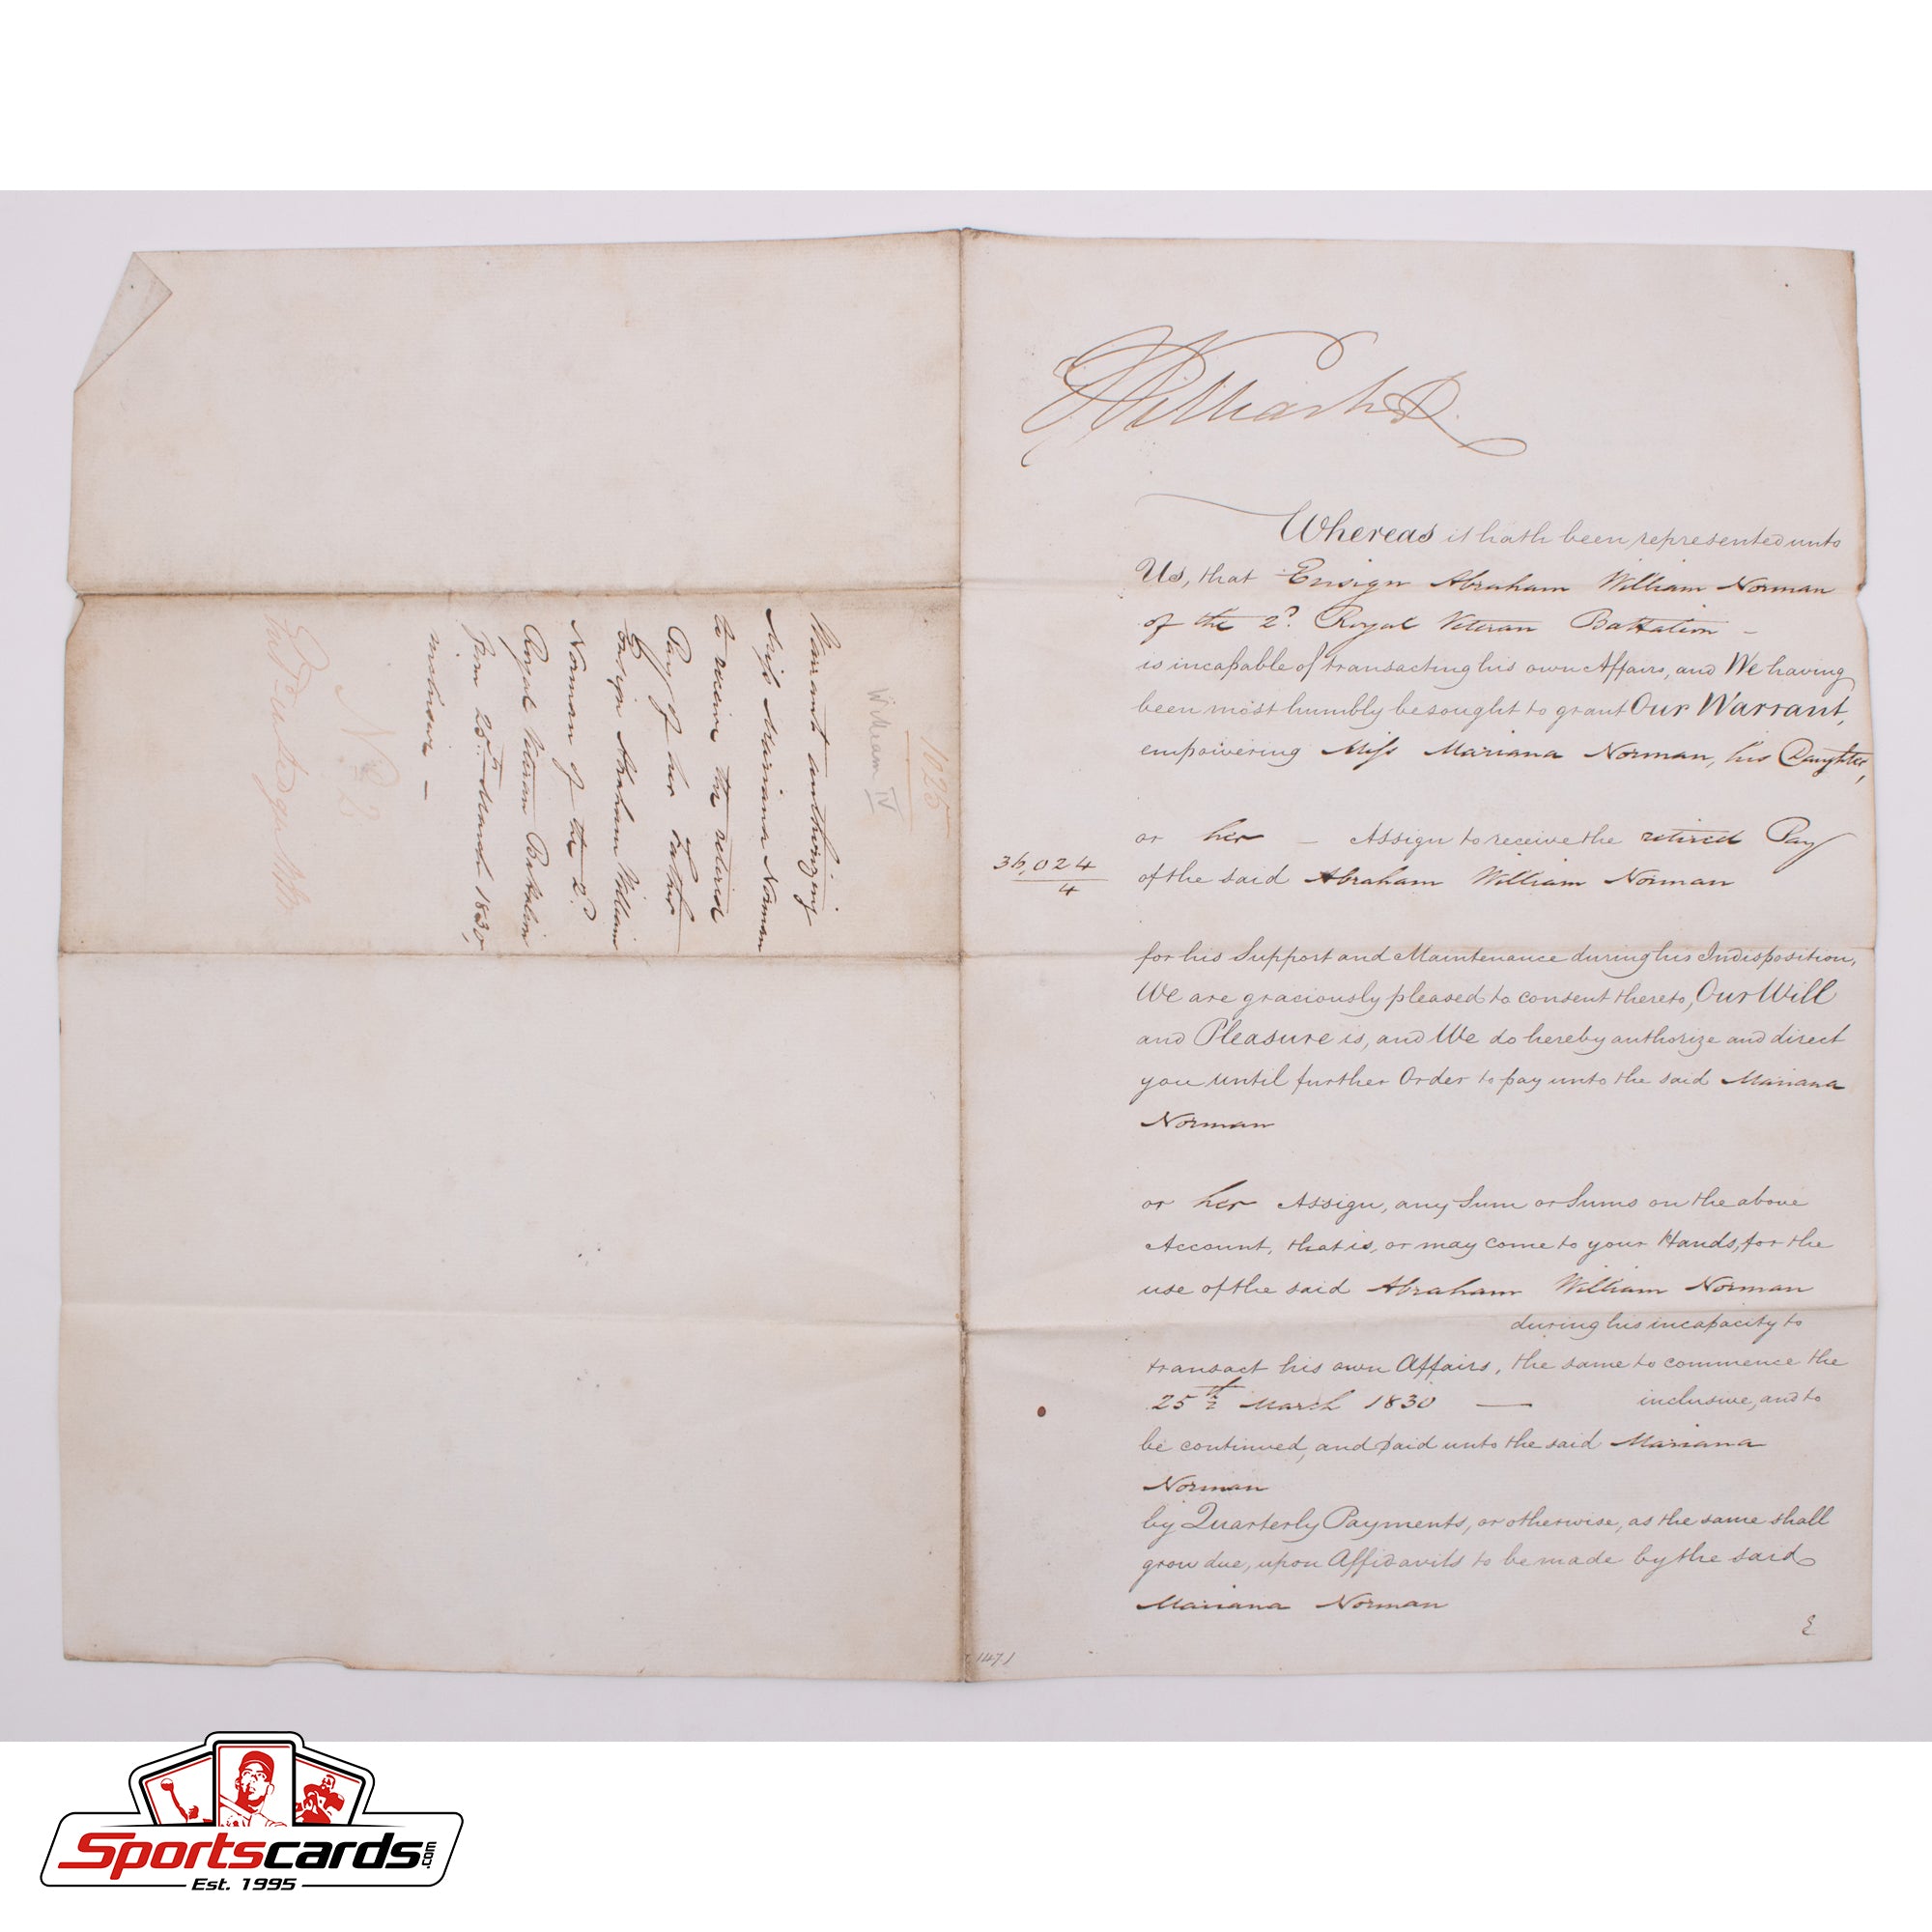 William R
Whereas it hath been represented unto
Us, that Ensign Abraham William Norman
of the 2d. Royal Veteran Battalion –
is incapable of transacting his own Affairs, and We having
been most humbly besought to grant Our Warrant,
empowering Miss Mariana Norman, his Daughter,
or her – Assign to receive the retired Pay
36,024
4
of the said Abraham William Norman
for his Support and Maintenance during his Indisposition,
We are graciously pleased to consent thereto, Our Will
and Pleasure is, and We do hereby authorize and direct
you until further Order to pay unto the said Mariana
Norman
or her Assign, any Sum or Sums on the above
Account, that is, or may come to your Hands, for the
use of the said Abraham William Norman
during his incapacity to
transact his own Affairs, the same to commence the
25th March 1830 — inclusive, and to
be continued, and paid unto the said Mariana
Norman
by Quarterly Payments, or otherwise, as the same shall
grow due, upon Affidavits to be made by the said
Mariana Norman
1471
1025
William IV
Warrant authorizing
Miss Mariana Norman
to receive the retired
Pay of her Father
Ensign Abraham William
Norman of the 2d.
Royal Veteran Battalion
from 25th March 1830,
inclusive –
No 2
Sportscards.com
Est. 1995